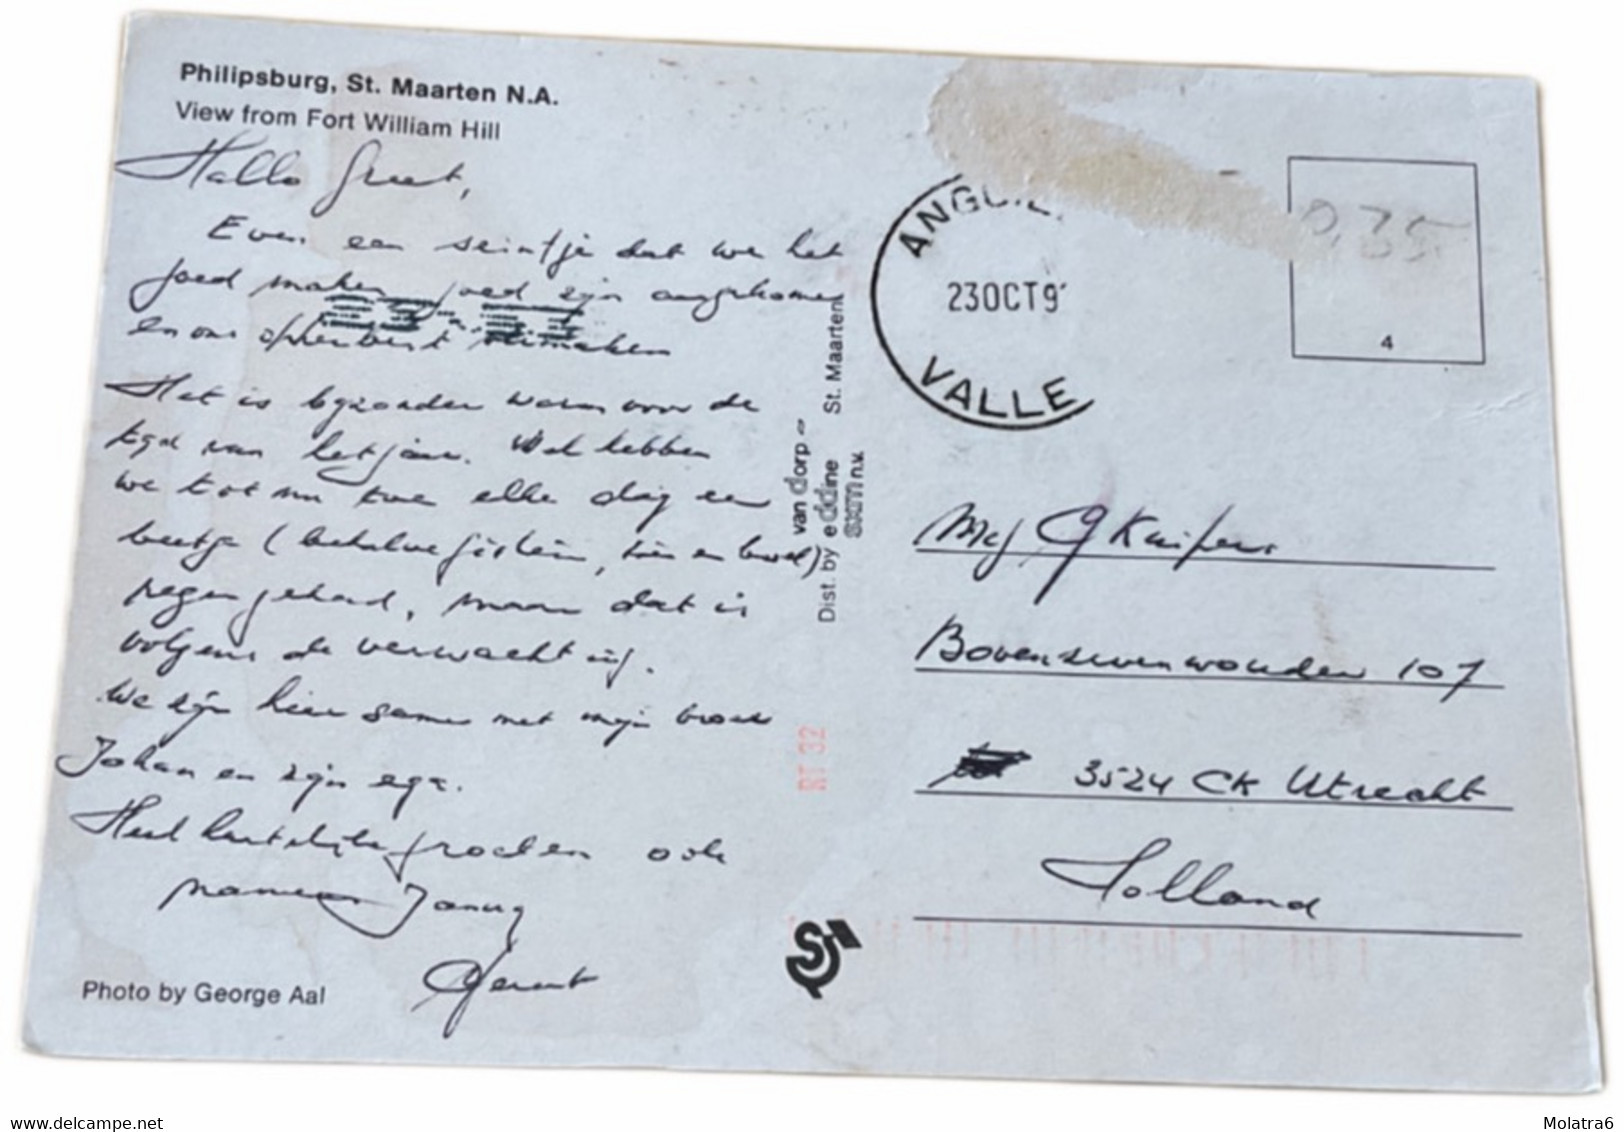 Philipsburg, St. Maarten N.A.
View from Fort William Hill
Hallo Greet,
Even een seintje dat we het
goed maken goed zijn aangekomen
en ons opperbest vermaken
Het is byzonder warm voor de
tyd van het jaar. Wel hebben
we tot nu toe elke dag een
beetje (behalve gisteren, toen en bewol)
regen gehad, maar dat is
volgens de verwachting.
We zijn hier samen met mijn broer
Johan en zijn ega.
Heel hartelijke groeten ook
namens Janny
Geert
Photo by George Aal
van dorp -
Dist. by eddine St. Maarten
sxm n.v.
RT 32
ANGUIL
23OCT9
VALLE
0,75
4
Mej G Kuipers
Bovenzevenwouden 107
3524 CK Utrecht
Holland
Molatra6